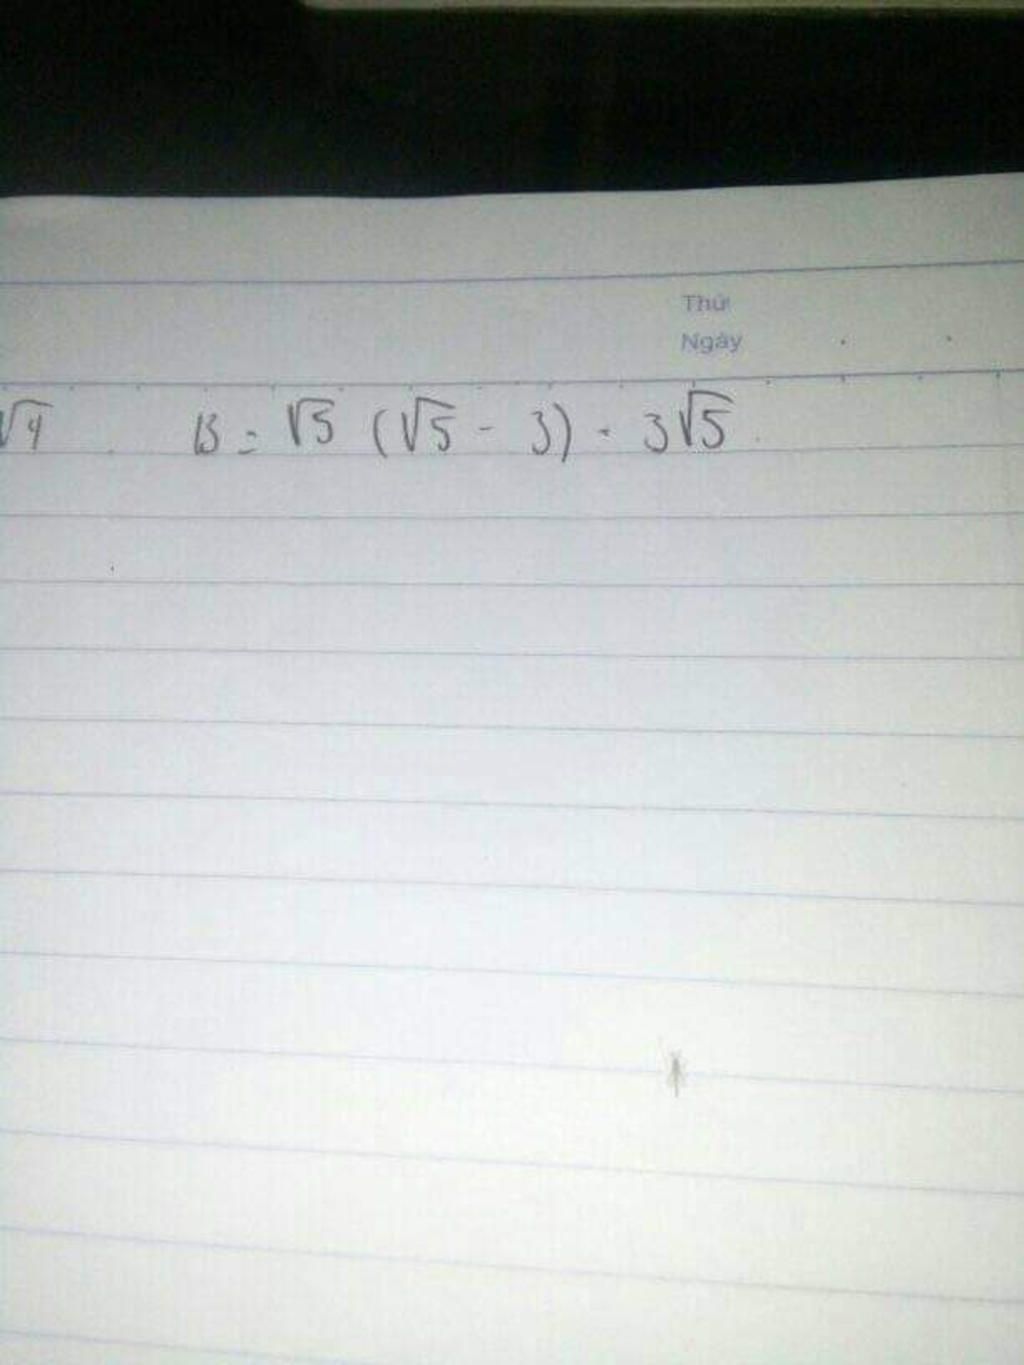 Thứ
Ngày
√4 B = √5 (√5 - 3) - 3√5